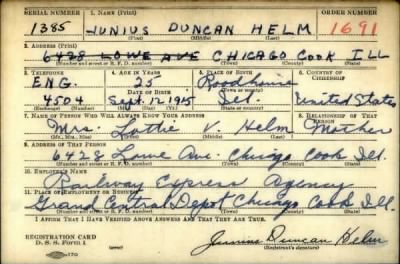 SERIAL NUMBER 1. NAME (Print) ORDER NUMBER
1385 JUNIUS DUNCAN HELM 1691
(First) (Middle) (Last)
2. ADDRESS (Print)
6428 LOWE AVE CHICAGO COOK ILL
(Number and street or R. F. D. number) (Town) (County) (State)
3. TELEPHONE 4. AGE IN YEARS 5. PLACE OF BIRTH 6. COUNTRY OF CITIZENSHIP
ENG. 25 Roodhouse
DATE OF BIRTH (Town or county)
4504 Sept. 12 1915 Ill. United States
(Exchange) (Number) (Mo.) (Day) (Yr.) (State or country)
7. NAME OF PERSON WHO WILL ALWAYS KNOW YOUR ADDRESS 8. RELATIONSHIP OF THAT PERSON
Mrs. Lottie Helm Mother
(Mr., Mrs., Miss) (First) (Middle) (Last)
9. ADDRESS OF THAT PERSON
6428 Lowe Ave. Chicago Cook Ill.
(Number and street or R. F. D. number) (Town) (County) (State)
10. EMPLOYER'S NAME
Railway Express Agency
11. PLACE OF EMPLOYMENT OR BUSINESS
Grand Central Depot Chicago Cook Ill.
(Number and street or R. F. D. number) (Town) (County) (State)
I AFFIRM THAT I HAVE VERIFIED ABOVE ANSWERS AND THAT THEY ARE TRUE.
REGISTRATION CARD
D. S. S. Form 1 Junius Duncan Helm
(Registrant's signature)